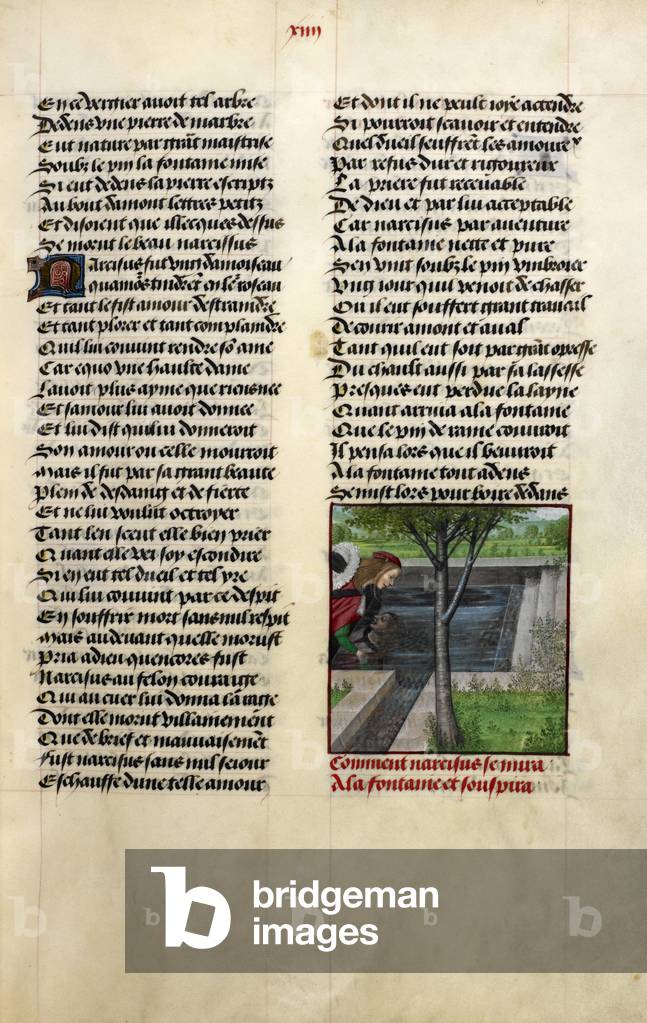 xiiii
En ce vergier avoit tel arbre
Dedens une pierre de marbre
Eut nature par grāt maistrise
Soubz le pin la fontaine mise
Si eut dedens la pierre escriptz
Au bout damont lettres petitz
Et disoient que illecques dessus
Se morut le beau narcissus
Narcisus fut ung damoiseau
quamōs tindrēt en le roseau
Et tant le fist amour destraindre
Et tant plorer et tant complaindre
Quil lui convint rendre sō ame
Car equo une haulte dame
Lavoit plus ayme que riens nee
Et samour lui avoit donnee
Et lui dist quil lui donneroit
Son amour ou celle mourroit
Mais il fut par sa grant beaute
Plein de desdaing et de fierte
Et ne lui voulut octroyer
Tant len sceut elle bien prier
Quant elle vei soy escondire
Si en eut tel dueil et tel yre
Quil lui convint par ce despit
En souffrir mort sans nul respit
Mais au devant quelle morust
Pria a dieu quencores fust
Narcisus au felon courauge
Qui au cuer lui donna la rage
Dont elle morut villainemēnt
Que de brief et mauvaisemēt
Fust narcisus sans nul seiour
Eschauffe dune telle amour
Et dont il ne peult ioye actendre
Si pourroit scavoir et entendre
Quel dueil seuffrēt les amoureˣ
Par refus dur et rigoureux
La priere fut recevable
De dieu et par lui acceptable
Car narcisus par aventure
A la fontaine nette et pure
Sen vint soubz le pin umbroier
Ung iour quil venoit de chasser
Ou il eut souffert grant travail
De courir amont et aval
Tant quil eut soif par grāt opresse
Du chault aussi par sa lassesse
Presques eut perdue la layne
Quant arriva a la fontaine
Que le pin de rame couvroit
Il pensa lors que il beuvroit
A la fontaine tout adens
Se mist lors pour boire dedans
Comment narcisus se mira
A la fontaine et souspira
bridgeman
images